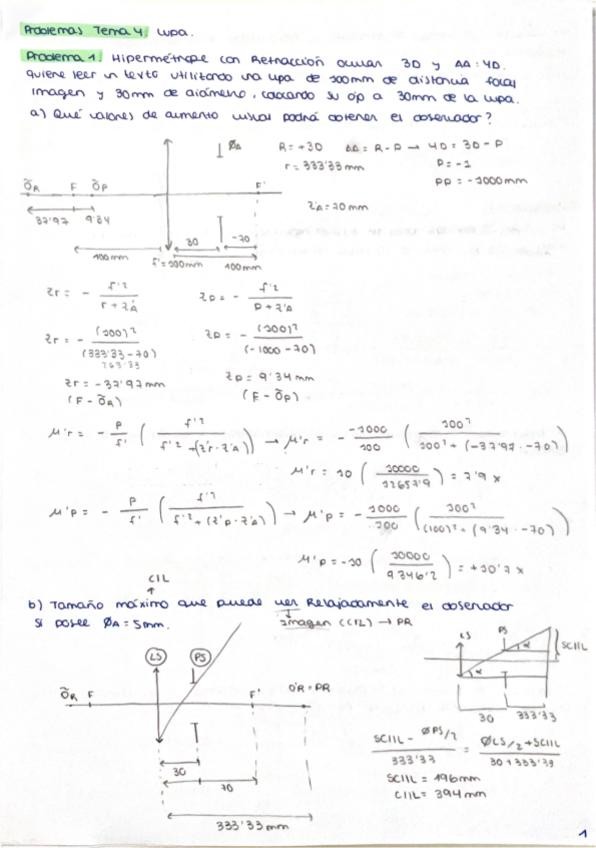 Problemas Tema 4. Lupa.
Problema 1. Hipermétrope con Refracción ocular 3D y AA: 4D.
quiere leer un texto utilizando una lupa de 100mm de distancia focal
imagen y 30mm de diámetro, colocando su ojo a 30mm de la lupa.
a) Qué valores de aumento visual podrá obtener el observador?
ØA
R = +3D
AA = R - P → 4D = 3D - P
r = 333'33 mm
P = -1
PP = -1000mm
z'A = 70 mm
ÕR F ÕP
F'
37'97 9'34
30 -70
100mm f' = 100mm 100mm
zr = - f'² / r + z'A
zp = - f'² / p + z'A
zr = - (100)² / (333'33 - 70)
263'33
zp = - (100)² / (-1000 - 70)
zr = -37'97 mm
zp = 9'34 mm
(F - ÕR)
(F - ÕP)
μ'r = - P/f' ( f'² / f'² + (z'r · z'A) ) → μ'r = - -1000/100 ( 100² / 100² + (-37'97 · -70) )
μ'r = 10 ( 10000 / 12657'9 ) = 7'9 x
μ'p = - P/f' ( f'² / f'² + (z'p · z'A) ) → μ'p = - 1000/100 ( 100² / (100)² + (9'34 · -70) )
μ'p = -10 ( 10000 / 9346'2 ) = +10'7 x
CIL
b) Tamaño máximo que puede ver Relajadamente el observador
si posee ØA = 5mm.
Imagen (CIL) → PR
LS PS
ÕR F
F' O'R = PR
30
70
333'33 mm
LS PS
α α
SCIIL
30 333'33
SCIIL - ØPS/2 / 333'33 = ØLS/2 + SCIIL / 30 + 333'33
SCIIL = 196mm
CIIL = 394 mm
1